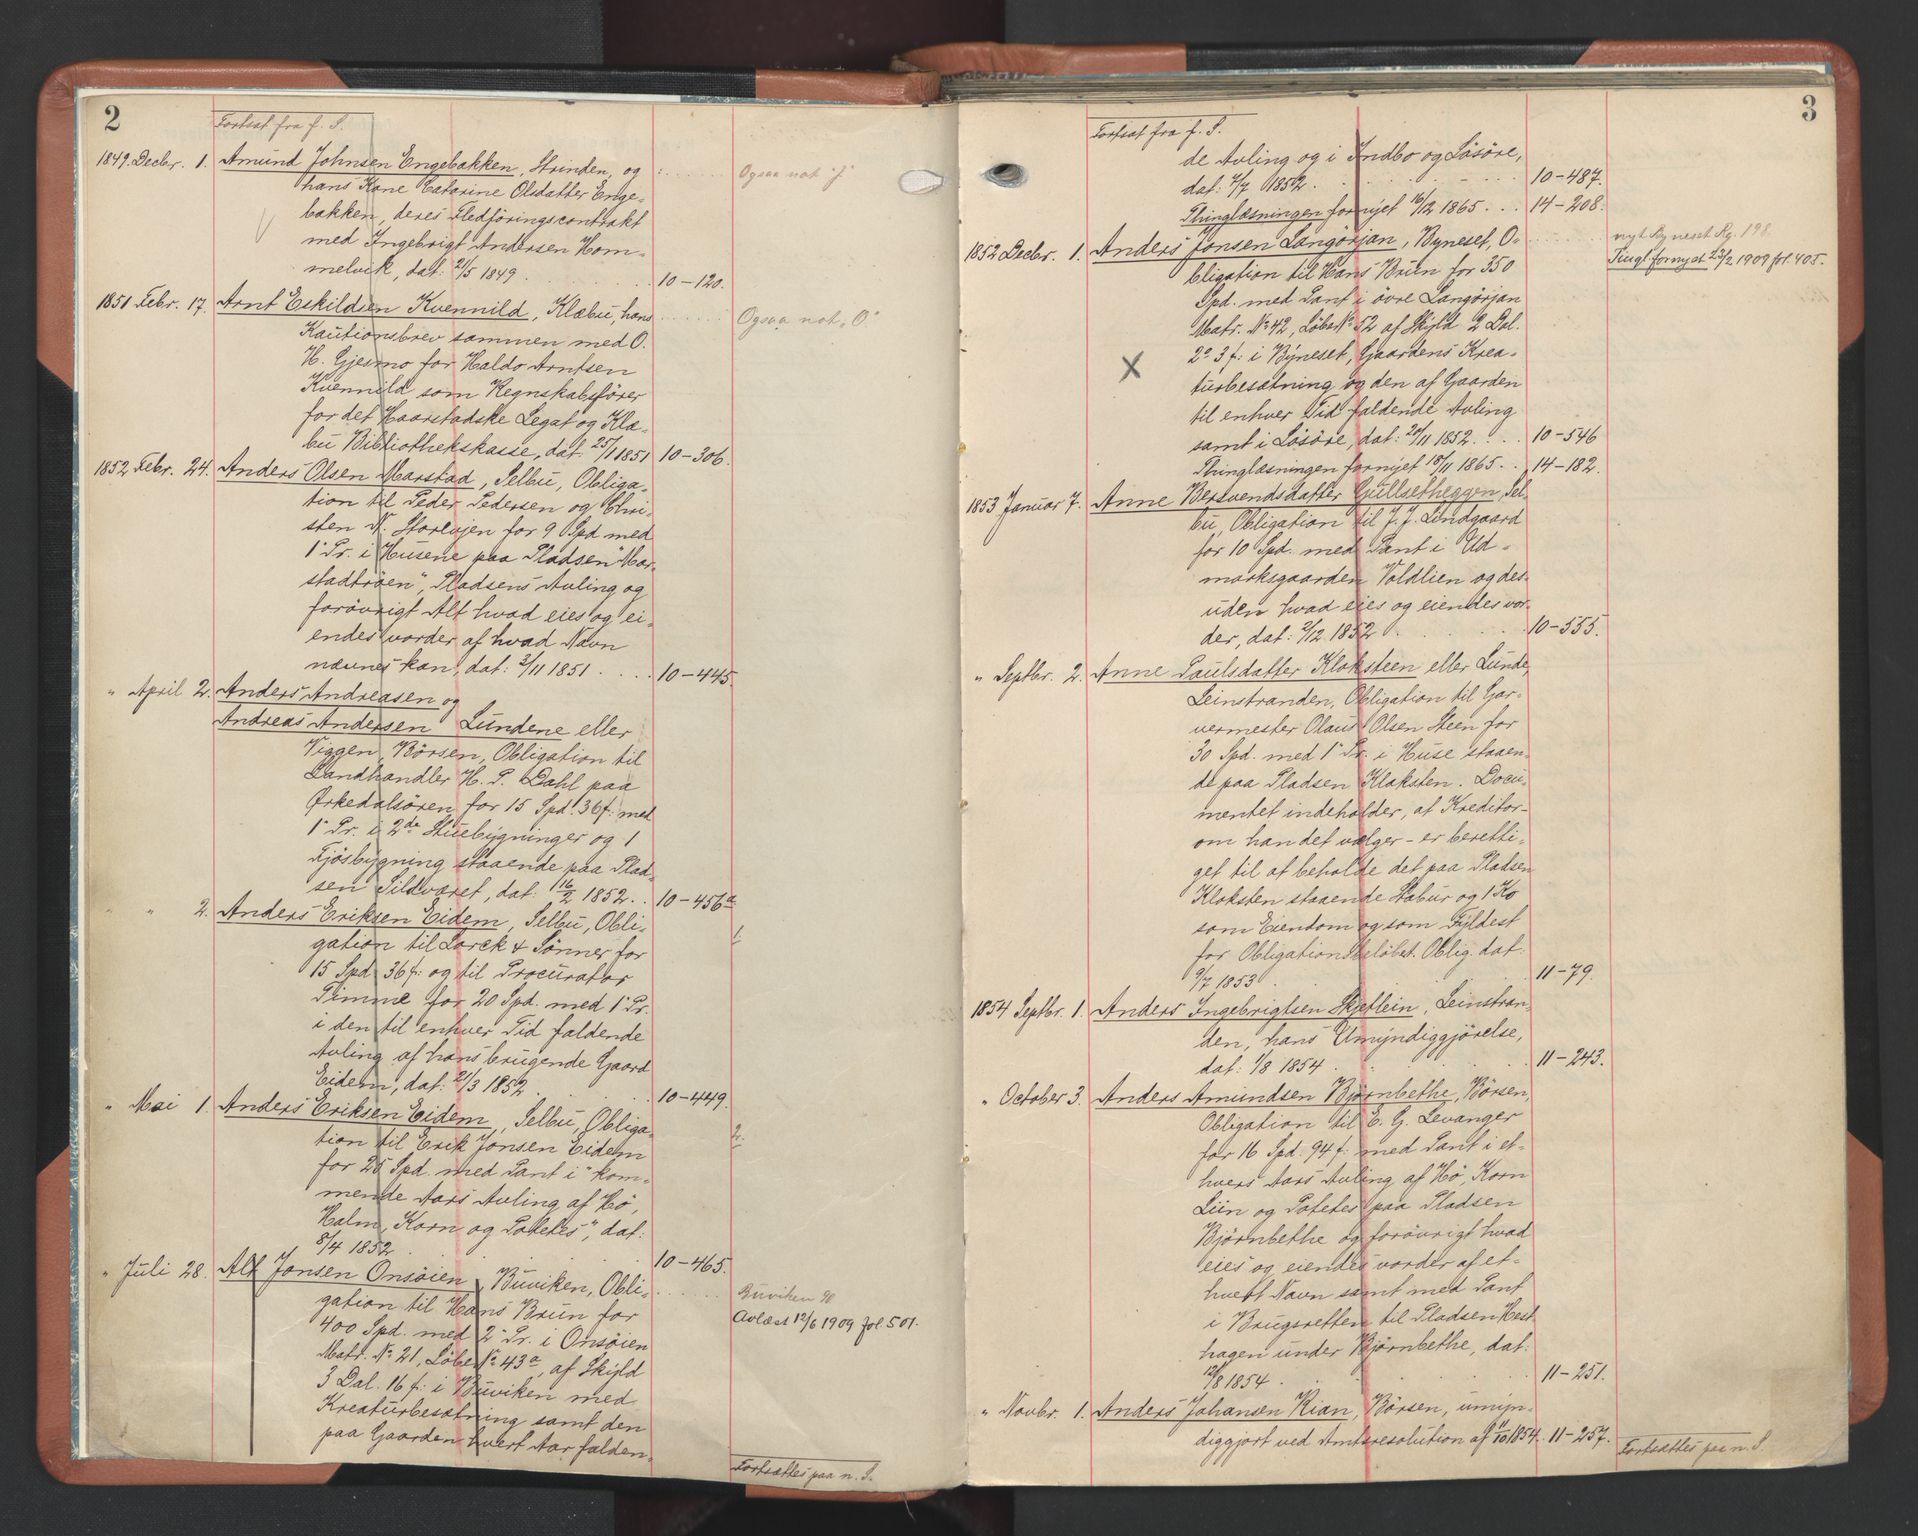 2
Fortsat fra f. S.
1849. Decbr. 1. Amund Johnsen Engebakken, Strinden, og
hans Kone Catarine Olsdatter Enge-
bakken, deres Fledföringscontrakt
med Ingebrigt Andersen Hom-
melvik, dat: 21/5 1849. 10-120.
Ogsaa not "J"
1851 Febr. 17. Arnt Eskildsen Kvennild, Klæbu, hans
Kautionsbrev sammen med O.
H. Gjesmo for Haldo Arntsen
Kvennild som Regnskabsfører
for det Haarstadske Legat og Klæ-
bu Bibliothekskasse, dat. 25/1 1851 10-306.
Ogsaa not "O"
1852 Febr. 24. Anders Olsen Marstad, Selbu, Obliga-
tion til Peder Pedersen og Chri-
sten N. Storevjen for 9 Spd med
1' Pr. i Husene paa Pladsen "Mar-
stadtröen", Pladsens Avling og
forövrigt Alt hvad eies og ei-
endes vorder af hvad Navn
nævnes kan, dat: 3/11 1851. 10-445.
" April 2. Anders Andreasen og
Andreas Andersen Lundene eller
Viggen, Börsen, Obligation til
Landhandler H. P. Dahl paa
Ørkedalsören for 15 Spd. 36 f: med
1' Pr. i 2de Stuebygninger og 1
Fjösbygning staaende paa Plad-
sen Sildværet, dat: 16/2 1852. 10-456a
" " 2. Anders Eriksen Eidem, Selbu, Obli-
gation til Lorck & Sönner for
15 Spd 36 f: og til Procurator
Timme for 20 Spd. med 1' Pr.
i den til enhver Tid faldende
Avling af hans brugende Gaard
Eidem, dat: 21/3 1852. 10-449.
1.
" Mai 1. Anders Eriksen Eidem, Selbu, Obliga-
tion til Erik Jonsen Eidem
for 25 Spd. med Pant i "kom-
mende Aars Avling af Hö,
Halm, Korn og Potetes", dat:
8/4 1852. 10-465.
2.
" Juli 28. Alf Jonsen Onsöien, Buviken, Obli-
gation til Hans Brun for
400 Spd. med 2' Pr. i Onsöien
Matr. No 21, Löbe No 43a, af Skyld
3 Dal. 16 f: i Buviken med
Kreaturbesætning samt den
paa Gaarden hvert Aar falden-
Buviken
Avlæst 12/6 1909 fol 501.
Fortsættes paa n. S.
3
Fortsat fra f. S.
de Avling og i Indbo og Lösöre,
dat: 7/7 1852. 10-487.
Thinglæsningen fornyet 16/12 1865. 14-208.
1852 Decbr. 1. Anders Jonsen Langörjan, Byneset, O-
bligation til Hans Brun for 350
Spd. med Pant i övre Langörjan
Matr. No 42, Löbe No 52 af Skyld 2 Dal.
2o 3 f: i Byneset, Gaardens Krea-
turbesætning og den af Gaarden
til enhver Tid faldende Avling
samt i Lösöre, dat: 20/11 1852. 10-546
Thinglæsningen fornyet 18/11 1865. 14-182.
nyt Byneset Rg. 198
Tingl fornyet 23/2 1909 fol. 405.
1853 Januar 7. Anne Bersvendsdatter Gullsetheggen, Sel-
bu, Obligation til J. J. Lindgaard
for 10 Spd. med Pant i Ud-
marksgaarden Voldlien og des-
uden hvad eies og eiendes vor-
der, dat: 2/12 1852. 10-555.
" Septbr. 2. Anne Paulsdatter Kloksteen eller Lunde,
Leinstranden, Obligation til Gar-
vermester Olaus Olsen Steen for
30 Spd. med 1' Pr. i Huse staaen-
de paa Pladsen Kloksten. Docu-
mentet indeholder, at Kreditor-
om han det vælger - er beretti-
get til at beholde det paa Pladsen
Kloksten staaende Stabur og 1 Ko
som Eiendom og som Fyldest
for Obligationsbelöbet. Oblig. dat:
9/7 1853. 11-79.
1854 Septbr. 1. Anders Ingebrigtsen Skjetlein, Leinstran-
den, hans Umyndiggjörelse,
dat: 1/8 1854. 11-243.
" October 3. Anders Amundsen Björnbethe, Börsen,
Obligation til E. G. Levanger
for 16 Spd. 94 f: med Pant i et-
hvers Aars Avling af Hö, Korn
Liin og Potetes paa Pladsen
Björnbethe og forövrigt hvad
eies og eiendes vorder af et-
hvert Navn samt med Pant
i Brugsretten til Pladsen Hest
hagen under Björnbethe, dat:
12/8 1854. 11-251.
" Novbr. 1. Anders Johansen Rian, Börsen, umyn-
diggjort ved Amtsresolution af 11/10 1854. 11-257.
Fortsættes paa n. S.